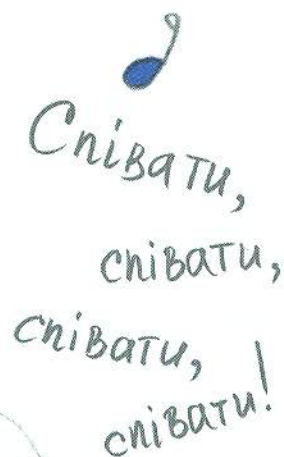 Співати,
співати,
співати,
співати!